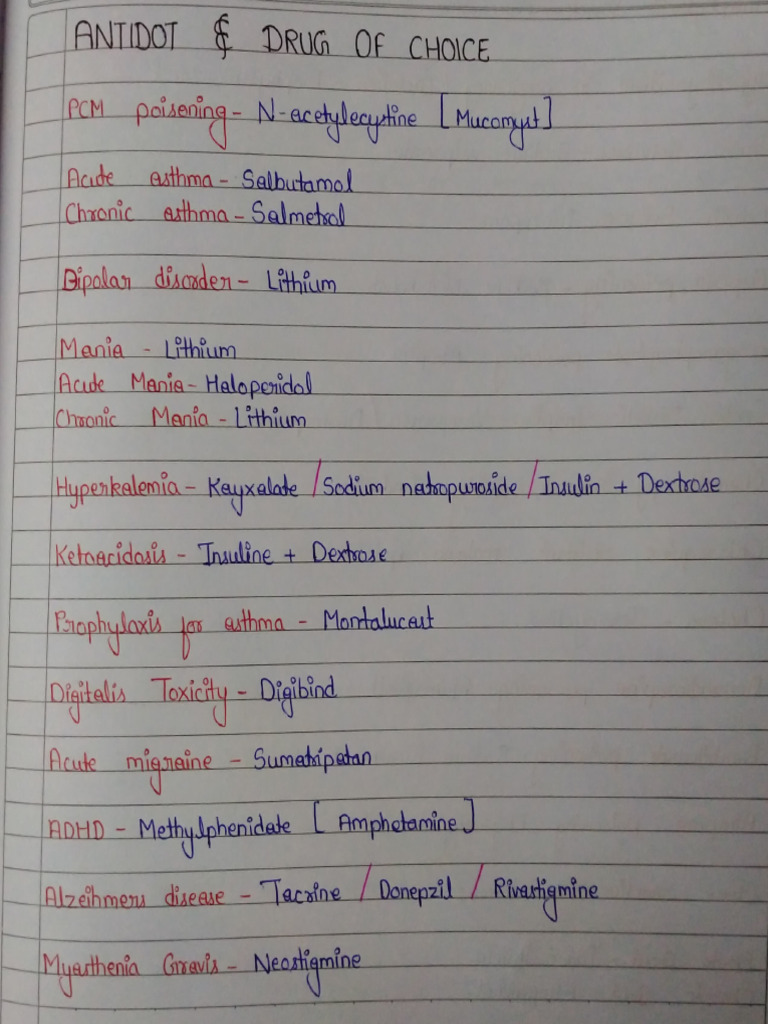 ANTIDOT & DRUG OF CHOICE
PCM poisening - N-acetylecystine [Mucomyst]
Acute asthma - Salbutamol
Chronic asthma - Salmetrol
Bipolar disorder - Lithium
Mania - Lithium
Acute Mania - Haloperidol
Chronic Mania - Lithium
Hyperkalemia - Kayxalate / Sodium natropuroside / Insulin + Dextrose
Ketoacidosis - Insuline + Dextrose
Prophylaxis for asthma - Montalucast
Digitalis Toxicity - Digibind
Acute migraine - Sumatripatan
ADHD - Methylphenidate [Amphetamine]
Alzeihmers disease - Tacrine / Donepzil / Rivastigmine
Myasthenia Gravis - Neostigmine